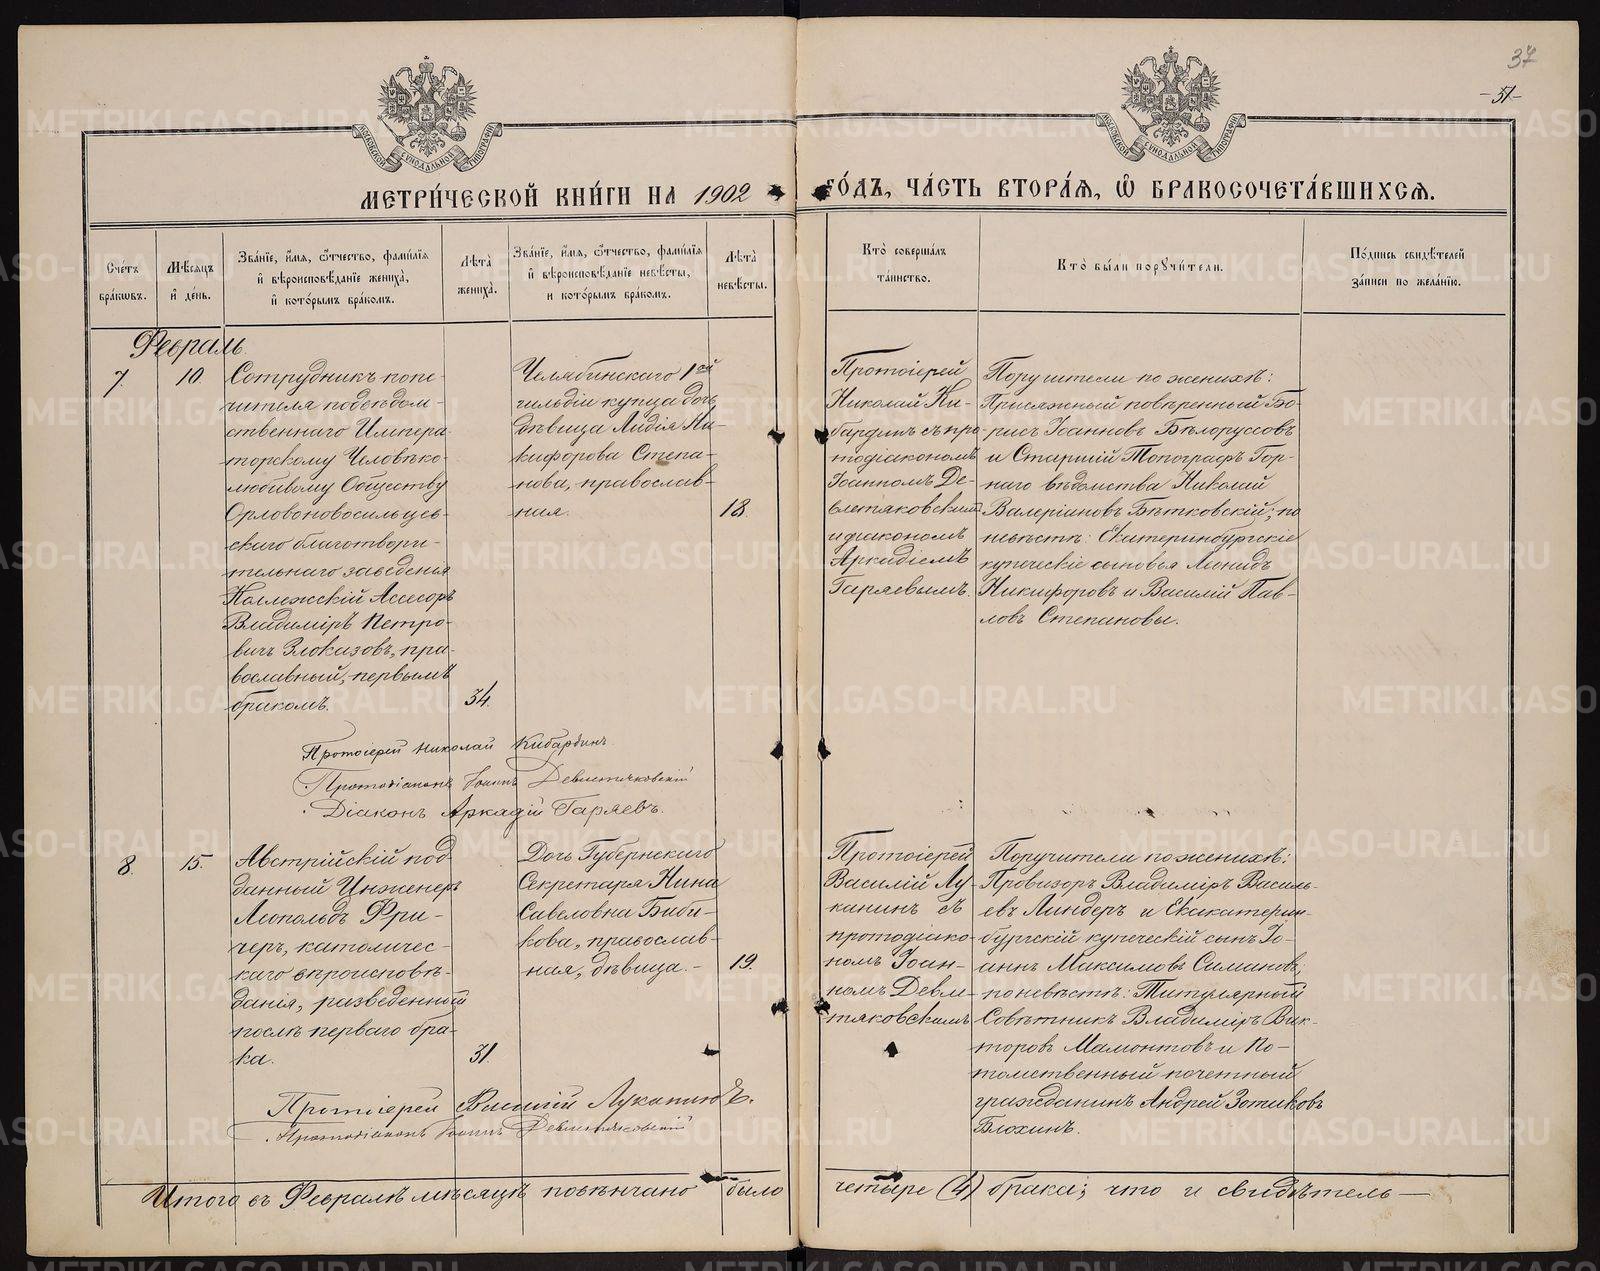 37
-51-
МЕТРИ́ЧЕСКОЙ КНИ́ГИ НА 1902 ГО́ДЪ, ЧА́СТЬ ВТОРА́Ѧ, Ѡ҆ БРАКОСОЧЕТА́ВШИХСѦ.
Сче́тъ
бра́кѡвъ.
Мѣ́сѧцъ
и҆ де́нь.
Зва́нїе, и҆́мѧ, ѻ҆́тчество, фами́лїѧ
и҆ вѣроисповѣ́данїе жениха̀,
и҆ кото́рымъ бра́комъ.
Лѣта̀
жениха̀.
Зва́нїе, и҆́мѧ, ѻ҆́тчество, фами́лїѧ
и҆ вѣроисповѣ́данїе невѣ́сты,
и кото́рымъ бра́комъ.
Лѣта̀
невѣ́сты.
Кто̀ соверша́лъ
та́инство.
Кто̀ бы́ли порꙋчи́тели.
По́дпись свидѣ́телей
за́писи по жела́нїю.
Февраль.
7.
10.
Сотрудникъ попе-
чителя подвѣдом-
ственнаго Импера-
торскому Человѣко-
любивому Обществу
Орловоновосильцев-
скаго благотвори-
тельнаго заведенья
Коллежскій Асесоръ
Владиміръ Петро-
вичъ Злоказовъ, пра-
вославный, первымъ
бракомъ.
34.
Челябинскаго 1ой
гильдіи купца дочь
дѣвица Лидія Ни-
кифорова Степа-
нова, православ-
ная.
18.
Протоіерей
Николай Ки-
бардинъ съ про-
тодіакономъ
Іоанномъ Де-
влетяковскимъ
и діакономъ
Аркадіемъ
Гаряевымъ.
Поручители по женихѣ:
Присяжный повѣренный Бо-
рисъ Іоанновъ Бѣлоруссовъ
и Старшій Топографъ Гор-
наго вѣдомства Николай
Валеріановъ Бѣтковскій; по
невѣстѣ: Екатеринбургскіе
купеческіе сыновья Леонидъ
Никифоровъ и Василій Пав-
ловъ Степановы.
Протоіерей Николай Кибардинъ
Протодіаконъ Іоаннъ Девлетяковскій
Діаконъ Аркадій Гаряевъ.
8.
15.
Австрійскій под-
данный Инженеръ
Леопольдъ Фри-
черъ, католичес-
каго вѣроисповѣ-
данія, разведенный
послѣ перваго бра-
ка.
31.
Дочь Губернскаго
Секретаря Нина
Савеловна Биби-
кова, православ-
ная, дѣвица.-
19.
Протоіерей
Василій Лу-
канинъ съ
протодіако-
номъ Іоан-
номъ Девле-
тяковскимъ
Поручители по женихѣ:
Провизоръ Владиміръ Василь-
евъ Линдеръ и Екакатерин-
бургскій купеческій сынъ Іо-
аннъ Максимовъ Симановъ;
по невѣстѣ: Титулярный
Совѣтникъ Владиміръ Вик-
торовъ Мамонтовъ и По-
томственный почетный
гражданинъ Андрей Зотиковъ
Блохинъ.
Протоіерей Василій Луканинъ.
Протодіаконъ Іоаннъ Девлетяковскій
Итого въ Февралѣ мѣсяцѣ повѣнчано было четыре (4) брака; что и свидѣтель-